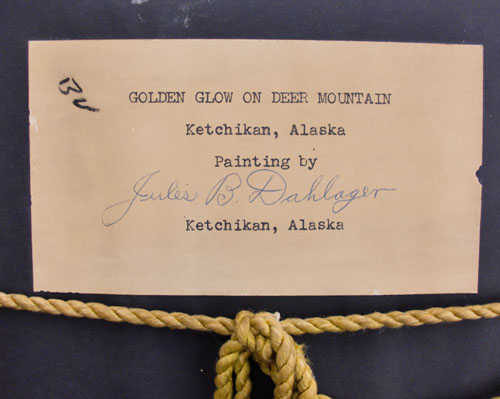 GOLDEN GLOW ON DEER MOUNTAIN
Ketchikan, Alaska
Painting by
Jules B. Dahlager
Ketchikan, Alaska